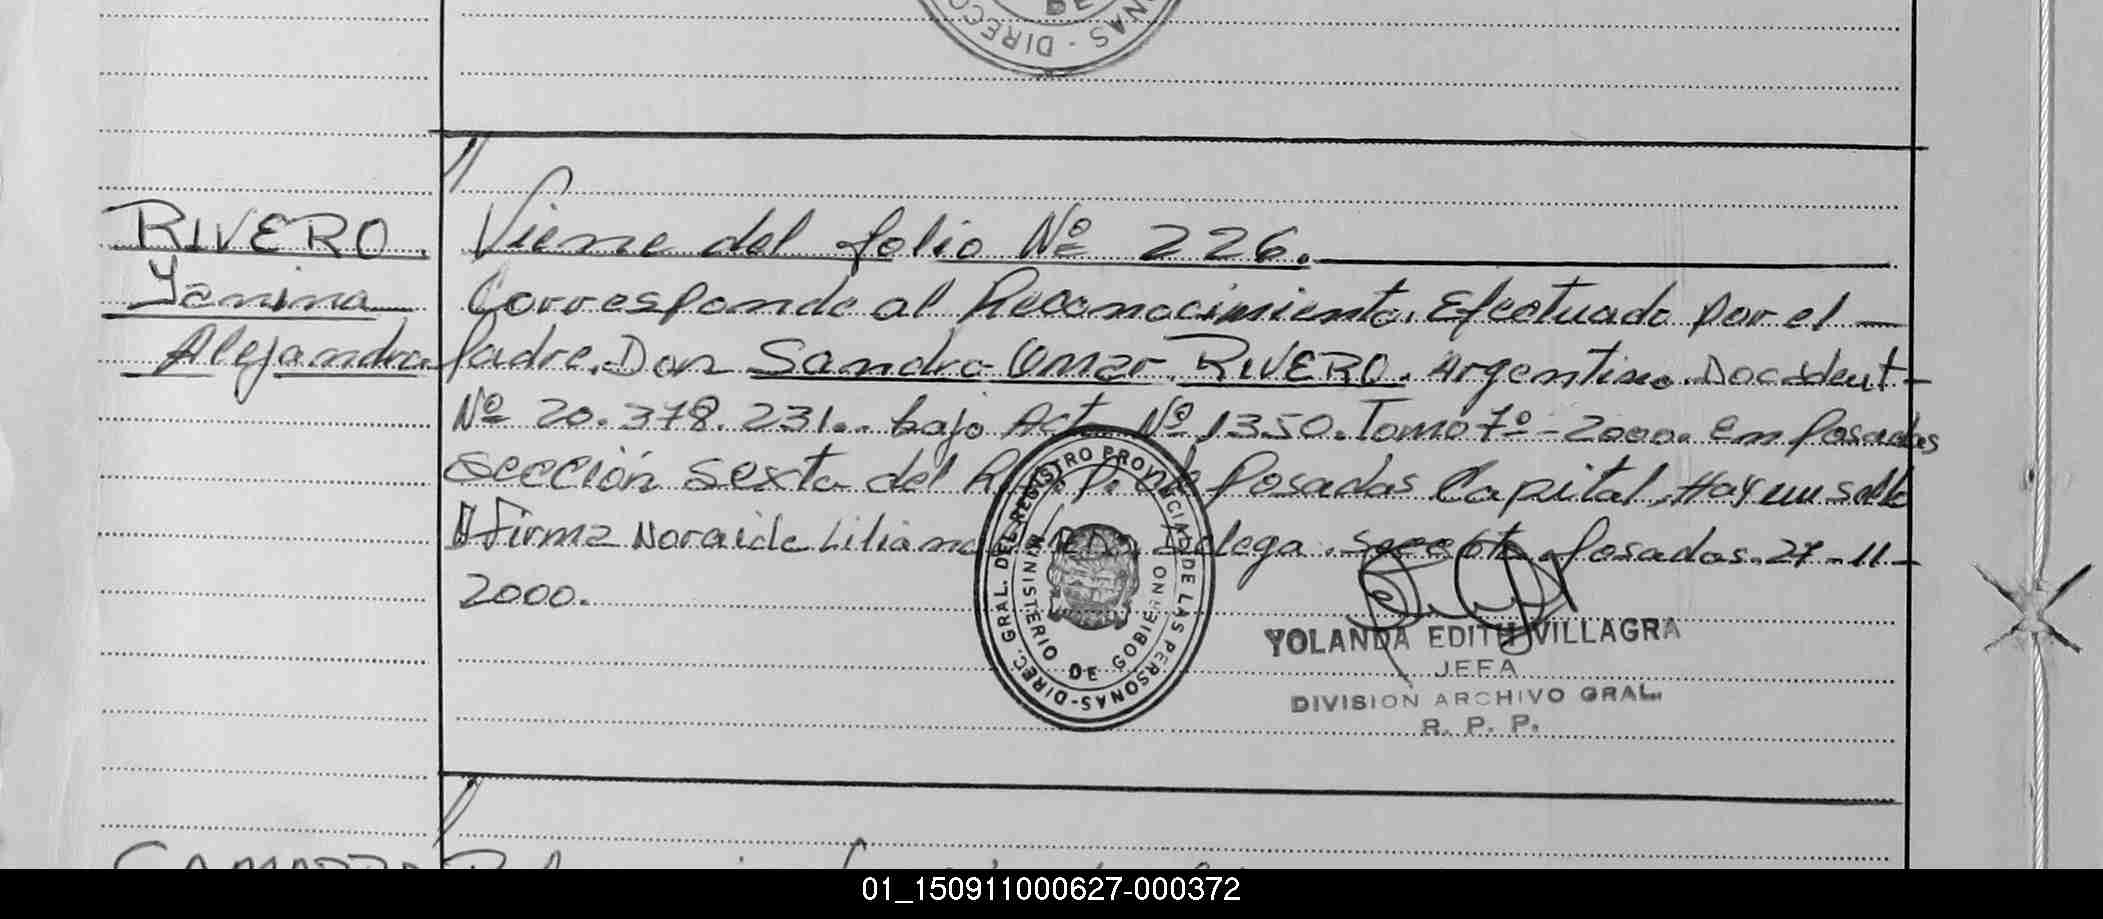 DIRECC
DE
NAS -
RIVERO.
Yanina
Alejandra
Viene del folio Nº 226.
Corresponde al Reconocimiento. Efectuado por el —
Padre. Don Sandro Omar RIVERO. Argentino. Doc. Ident -
Nº 20.378.231.. bajo Act. Nº 1350. Tomo 7º - 2000. en Posadas
sección sexta del R. P. P. de Posadas Capital. Hay un sello
firma Noraide Liliana Delega. Secc 6ta. Posadas. 27-11-
2000.
DIREC. GRAL. DEL REGISTRO PROVINCIAL DE LAS PERSONAS -
MINISTERIO DE GOBIERNO
YOLANDA EDITH VILLAGRA
JEFA
DIVISION ARCHIVO GRAL.
R. P. P.
01_150911000627-000372